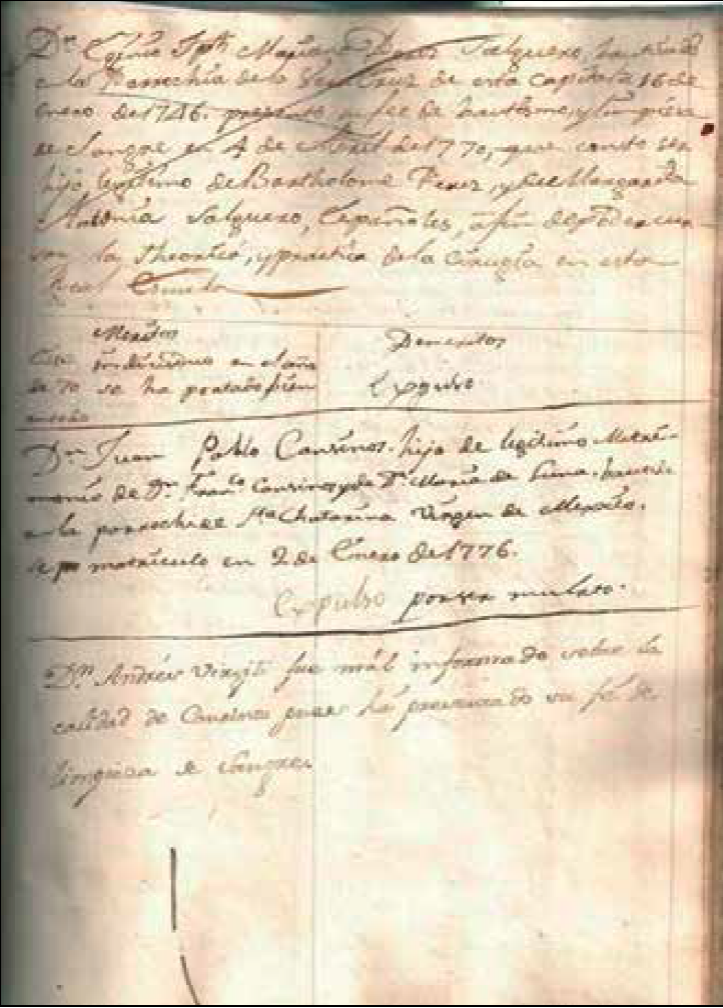 Dn. Jph. Mariano Perez Salguero, bautisado
en la Parrochia de la Sta. Cruz de esta Capital a 16 de
Enero de 1746. presento su fee de bautismo, y limpieza
de Sangre en 4 de Abril de 1770, que consto ser
hijo legitimo de Bartholome Perez, y de Margarita
Antonia Salguero, Españoles, a fin de poder cur-
sar la Theorica, y practica de la Cirugia en esta
Real Escuela
Meritos
Demeritos
Este individuo en el año
de 70 se ha portado bien
Expulso
Dn. Juan Pablo Cansinos. hijo de legitimo Matri-
monio de Dn. Franco. Cansinos y de Da. Maria de Luna.
a la parrochia de Sta. Chatarina Virgen de Mexico.
se matriculo en 2 de Enero de 1776.
Expulso por ser mulato.
Dn. Andres Virgili fue mal informado sobre la
calidad de Cansinos pues ha presentado su fé de
limpieza de sangre